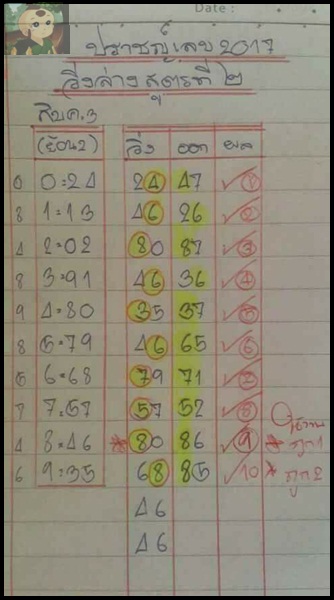 Date :
ปราชญ์เลข 2017
วิ่งล่าง สูตรที่ ๒
สิบ ค.3
(ย้อน2) วิ่ง ออก ผล
0 0=24 24 47 ✓1
8 1=13 46 26 ✓2
4 2=02 80 87 ✓3
8 3=91 46 36 ✓4
9 4=80 35 37 ✓5
8 5=79 46 65 ✓6
5 6=68 79 71 ✓7
7 7=57 57 52 ✓8
4 8=46 80 86 ✓9
6 9=35 68 85 ✓10 ถูก2
46
46